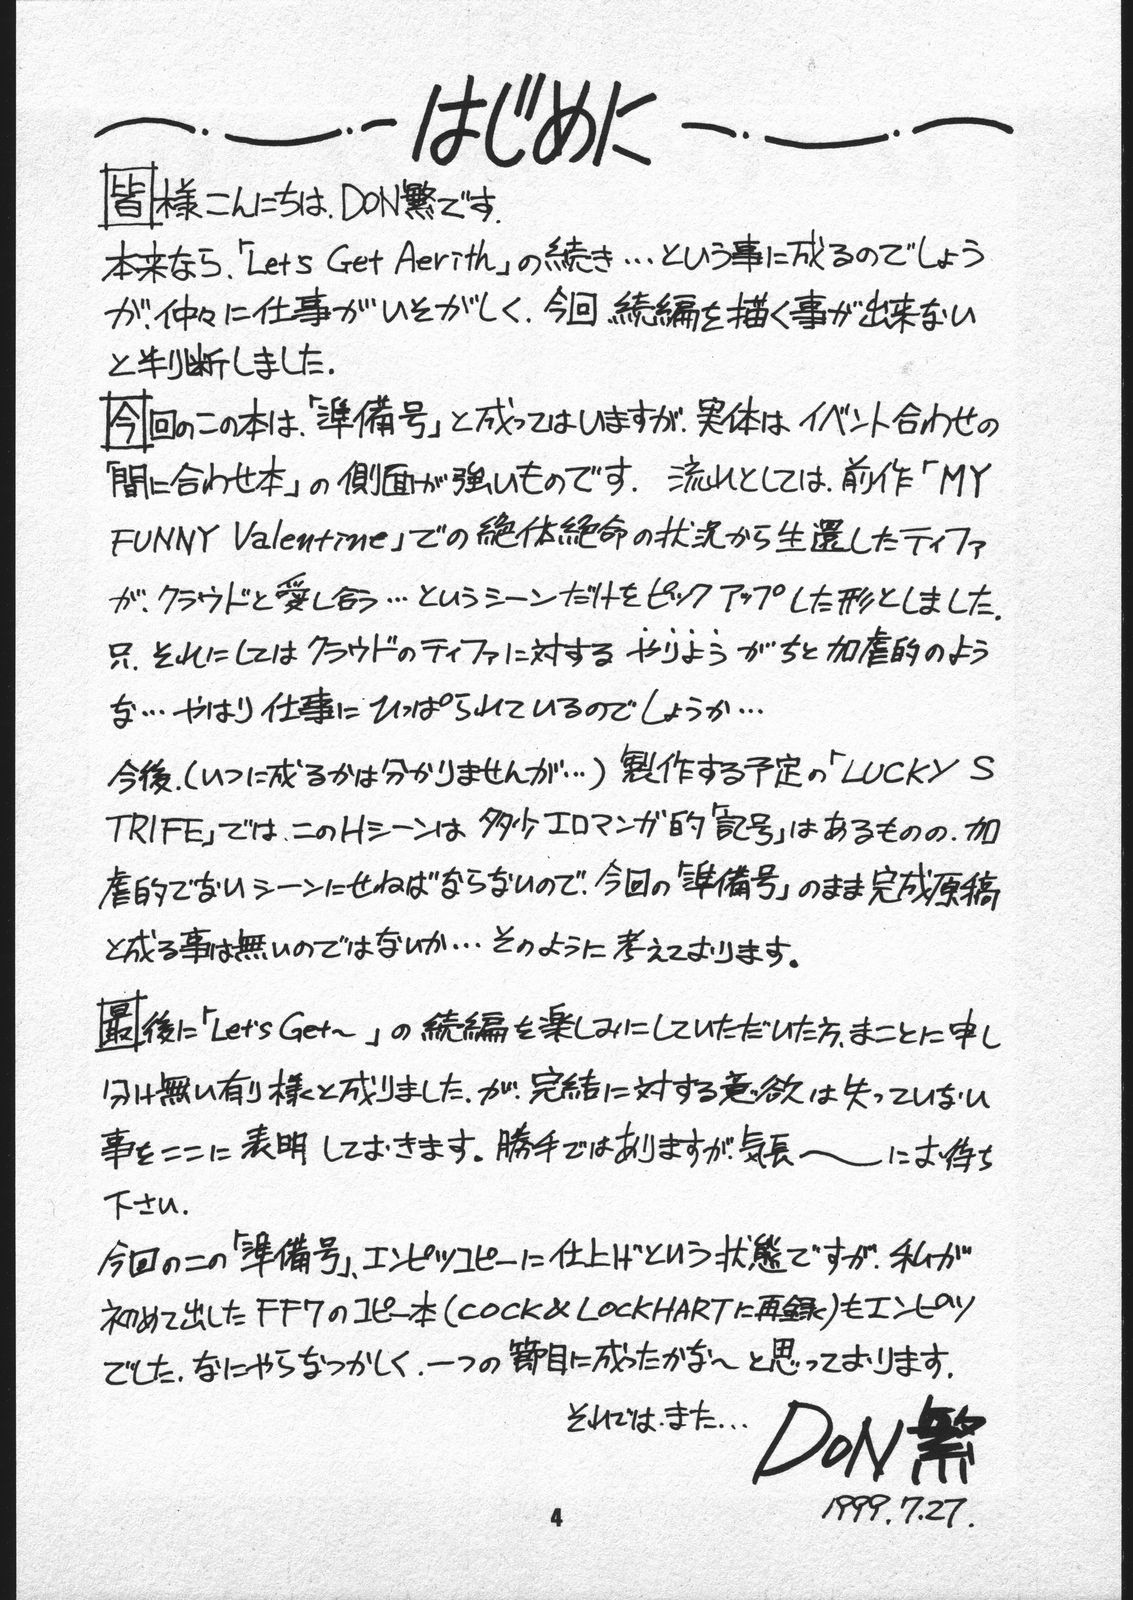 はじめに
皆様こんにちは、DON繁です.
本来なら、「Let's Get Aerith」の続き…という事に成るのでしょう
が、仲々に仕事がいそがしく、今回続編を描く事が出来ない
と判断しました.
今回のこの本は、「準備号」と成ってはいますが、実体はイベント合わせの
「間に合わせ本」の側面が強いものです. 流れとしては、前作「MY
FUNNY Valentine」での絶体絶命の状況から生還したティファ
が、クラウドと愛し合う…というシーンだけをピックアップした形としました.
只、それにしてはクラウドのティファに対するやりようがちと加虐的のよう
な…やはり仕事にひっぱられているのでしょうか…
今後、(いつに成るかは分かりませんが…)製作する予定の「LUCKY S
TRIFE」では、このHシーンは多少エロマンガ的「記号」はあるものの、加
虐的でないシーンにせねばならないので、今回の「準備号」のまま完成原稿
と成る事は無いのではないか…そのように考えております。
最後に「Let's Get〜」の続編を楽しみにしていただいた方、まことに申し
分け無い有り様と成りました.が、完結に対する意欲は失っていない
事をここに表明しておきます。勝手ではありますが、気長〜にお待ち
下さい.
今回のこの「準備号」、エンピツコピーに仕上げという状態ですが、私が
初めて出したFF7のコピー本(COCK&LOCKHARTに再録)もエンピツ
でした.なにやらなつかしく、一つの節目に成ったかな〜と思っております.
それでは、また...
DON繁
1999.7.27.
4